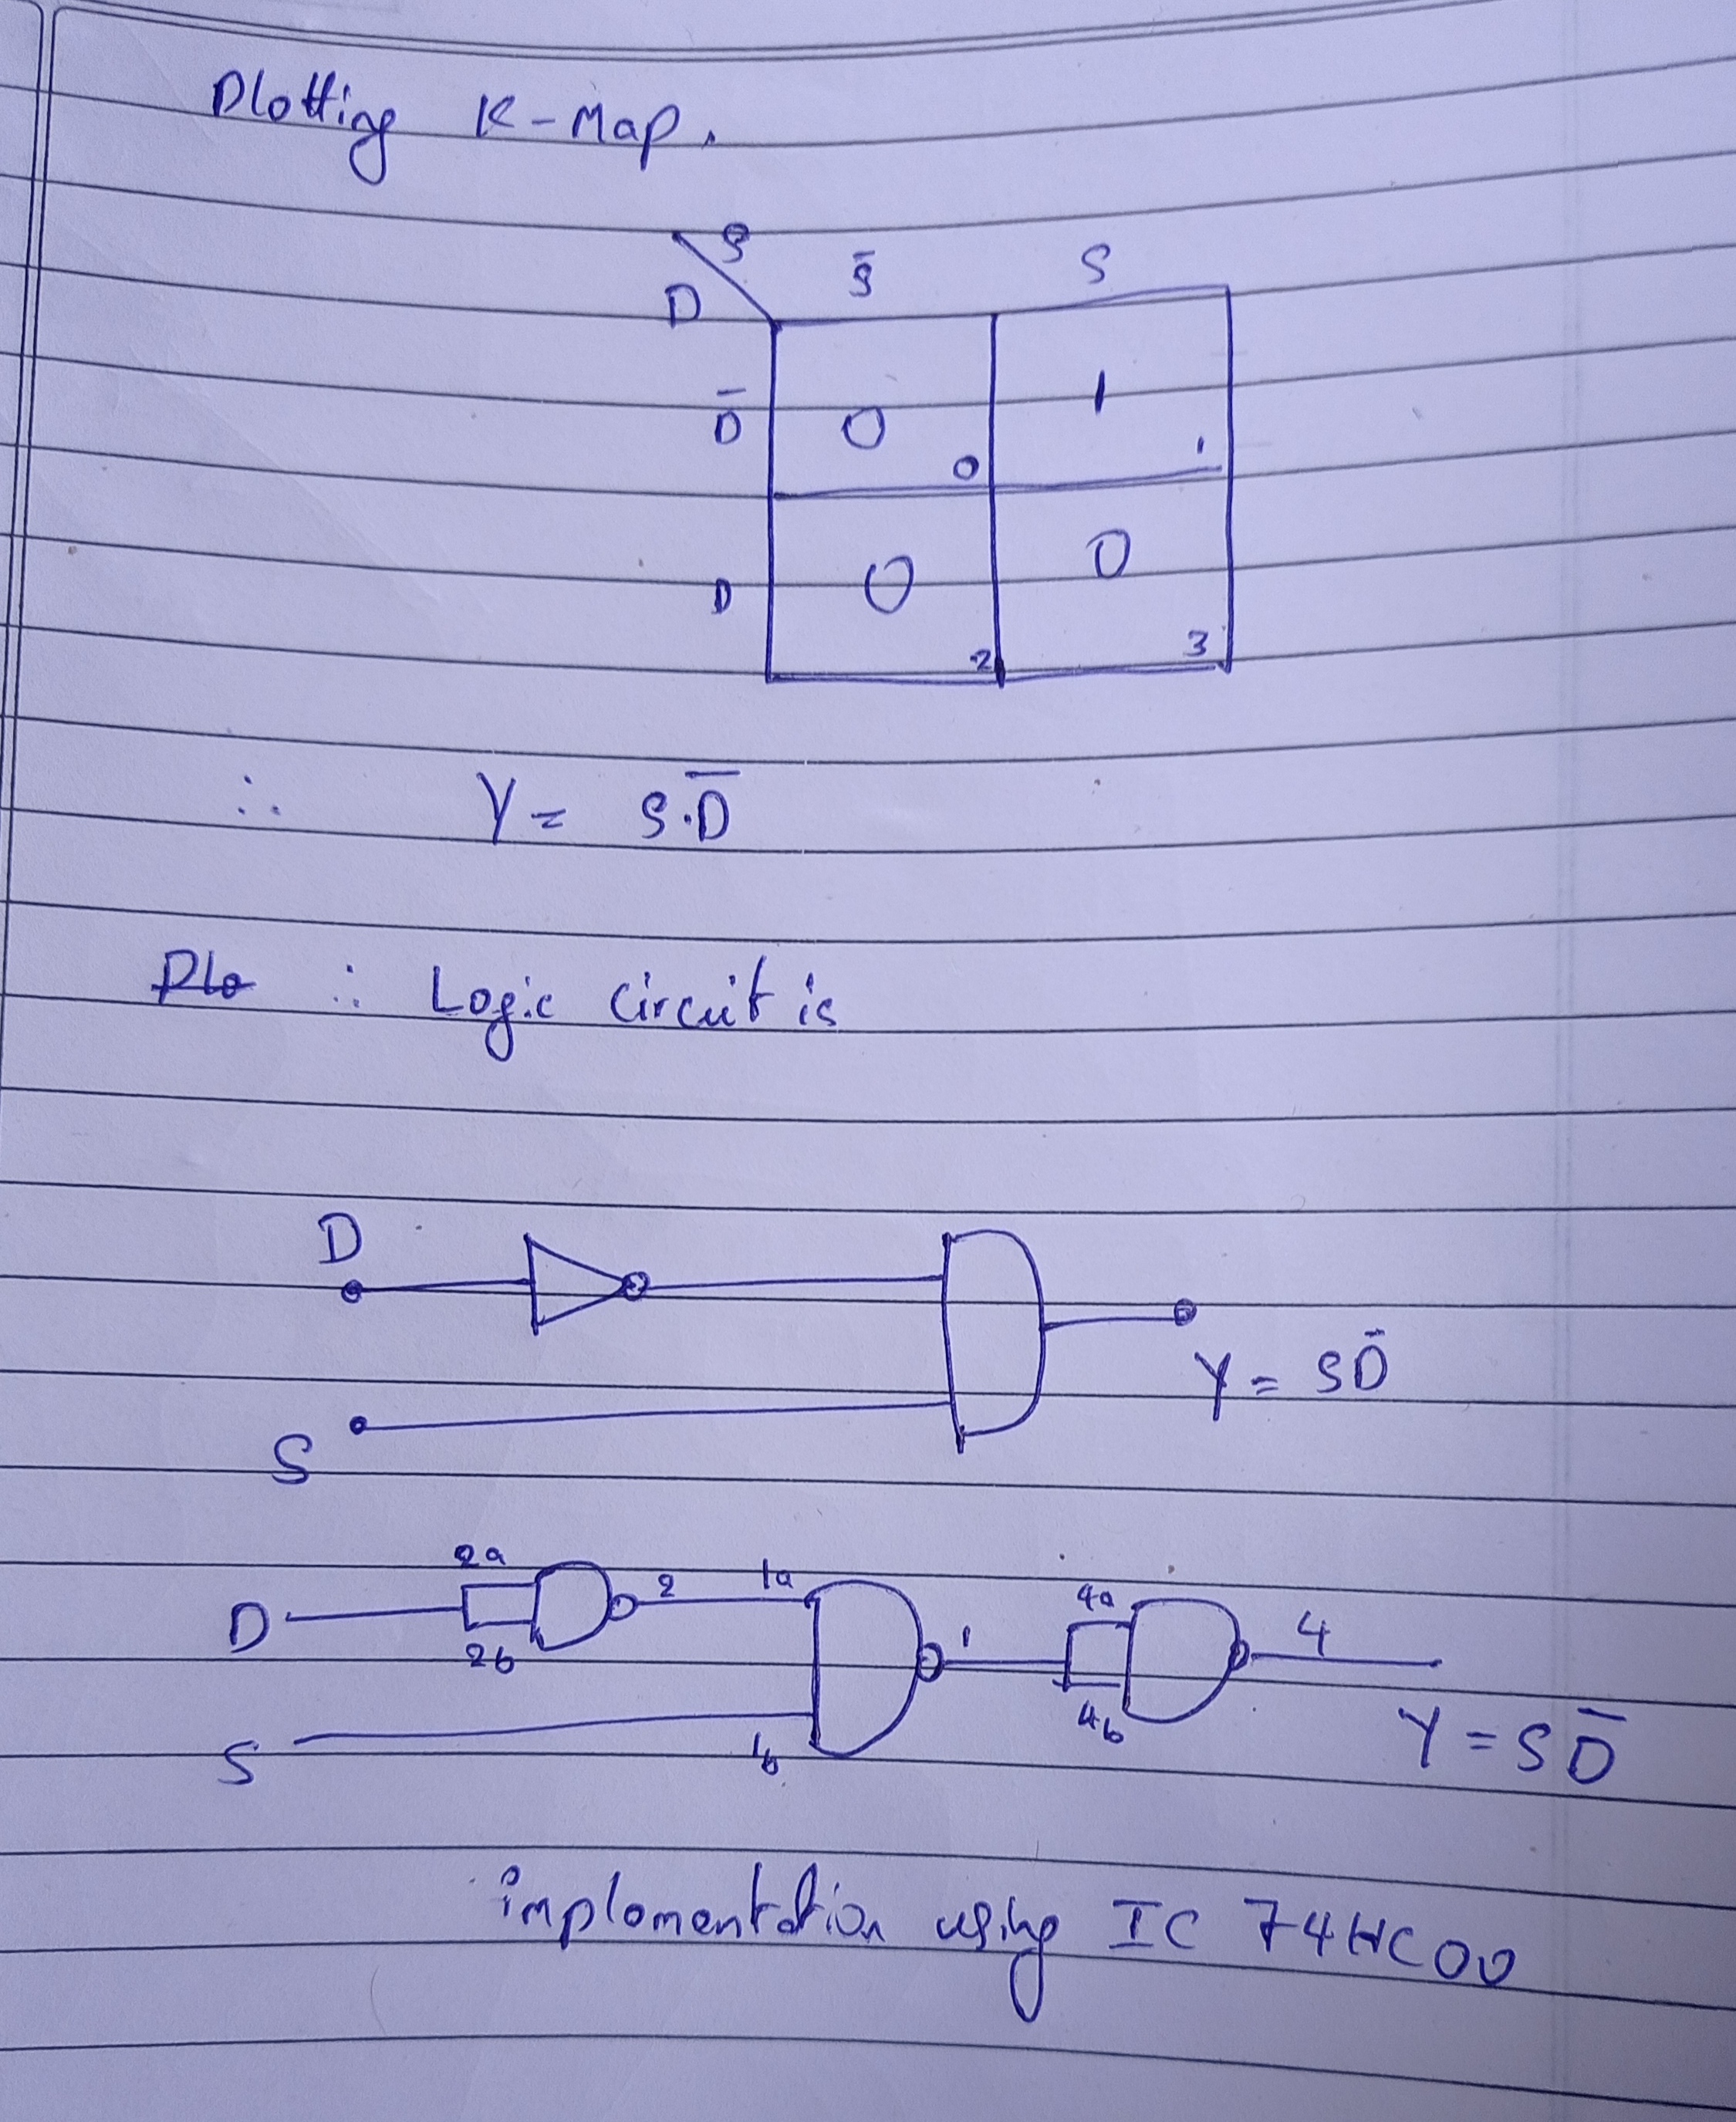 Plotting K-Map.
S
D
S̄ S
D̄ 0 0 1 1
D 0 2 0 3
∴ Y = S.D̄
Plo ∴ Logic circuit is
D
Y = SD̄
S
2a 2 1a 4a
D 1 4
2b
S 1b 4b Y = SD̄
implementation using IC 74HC00